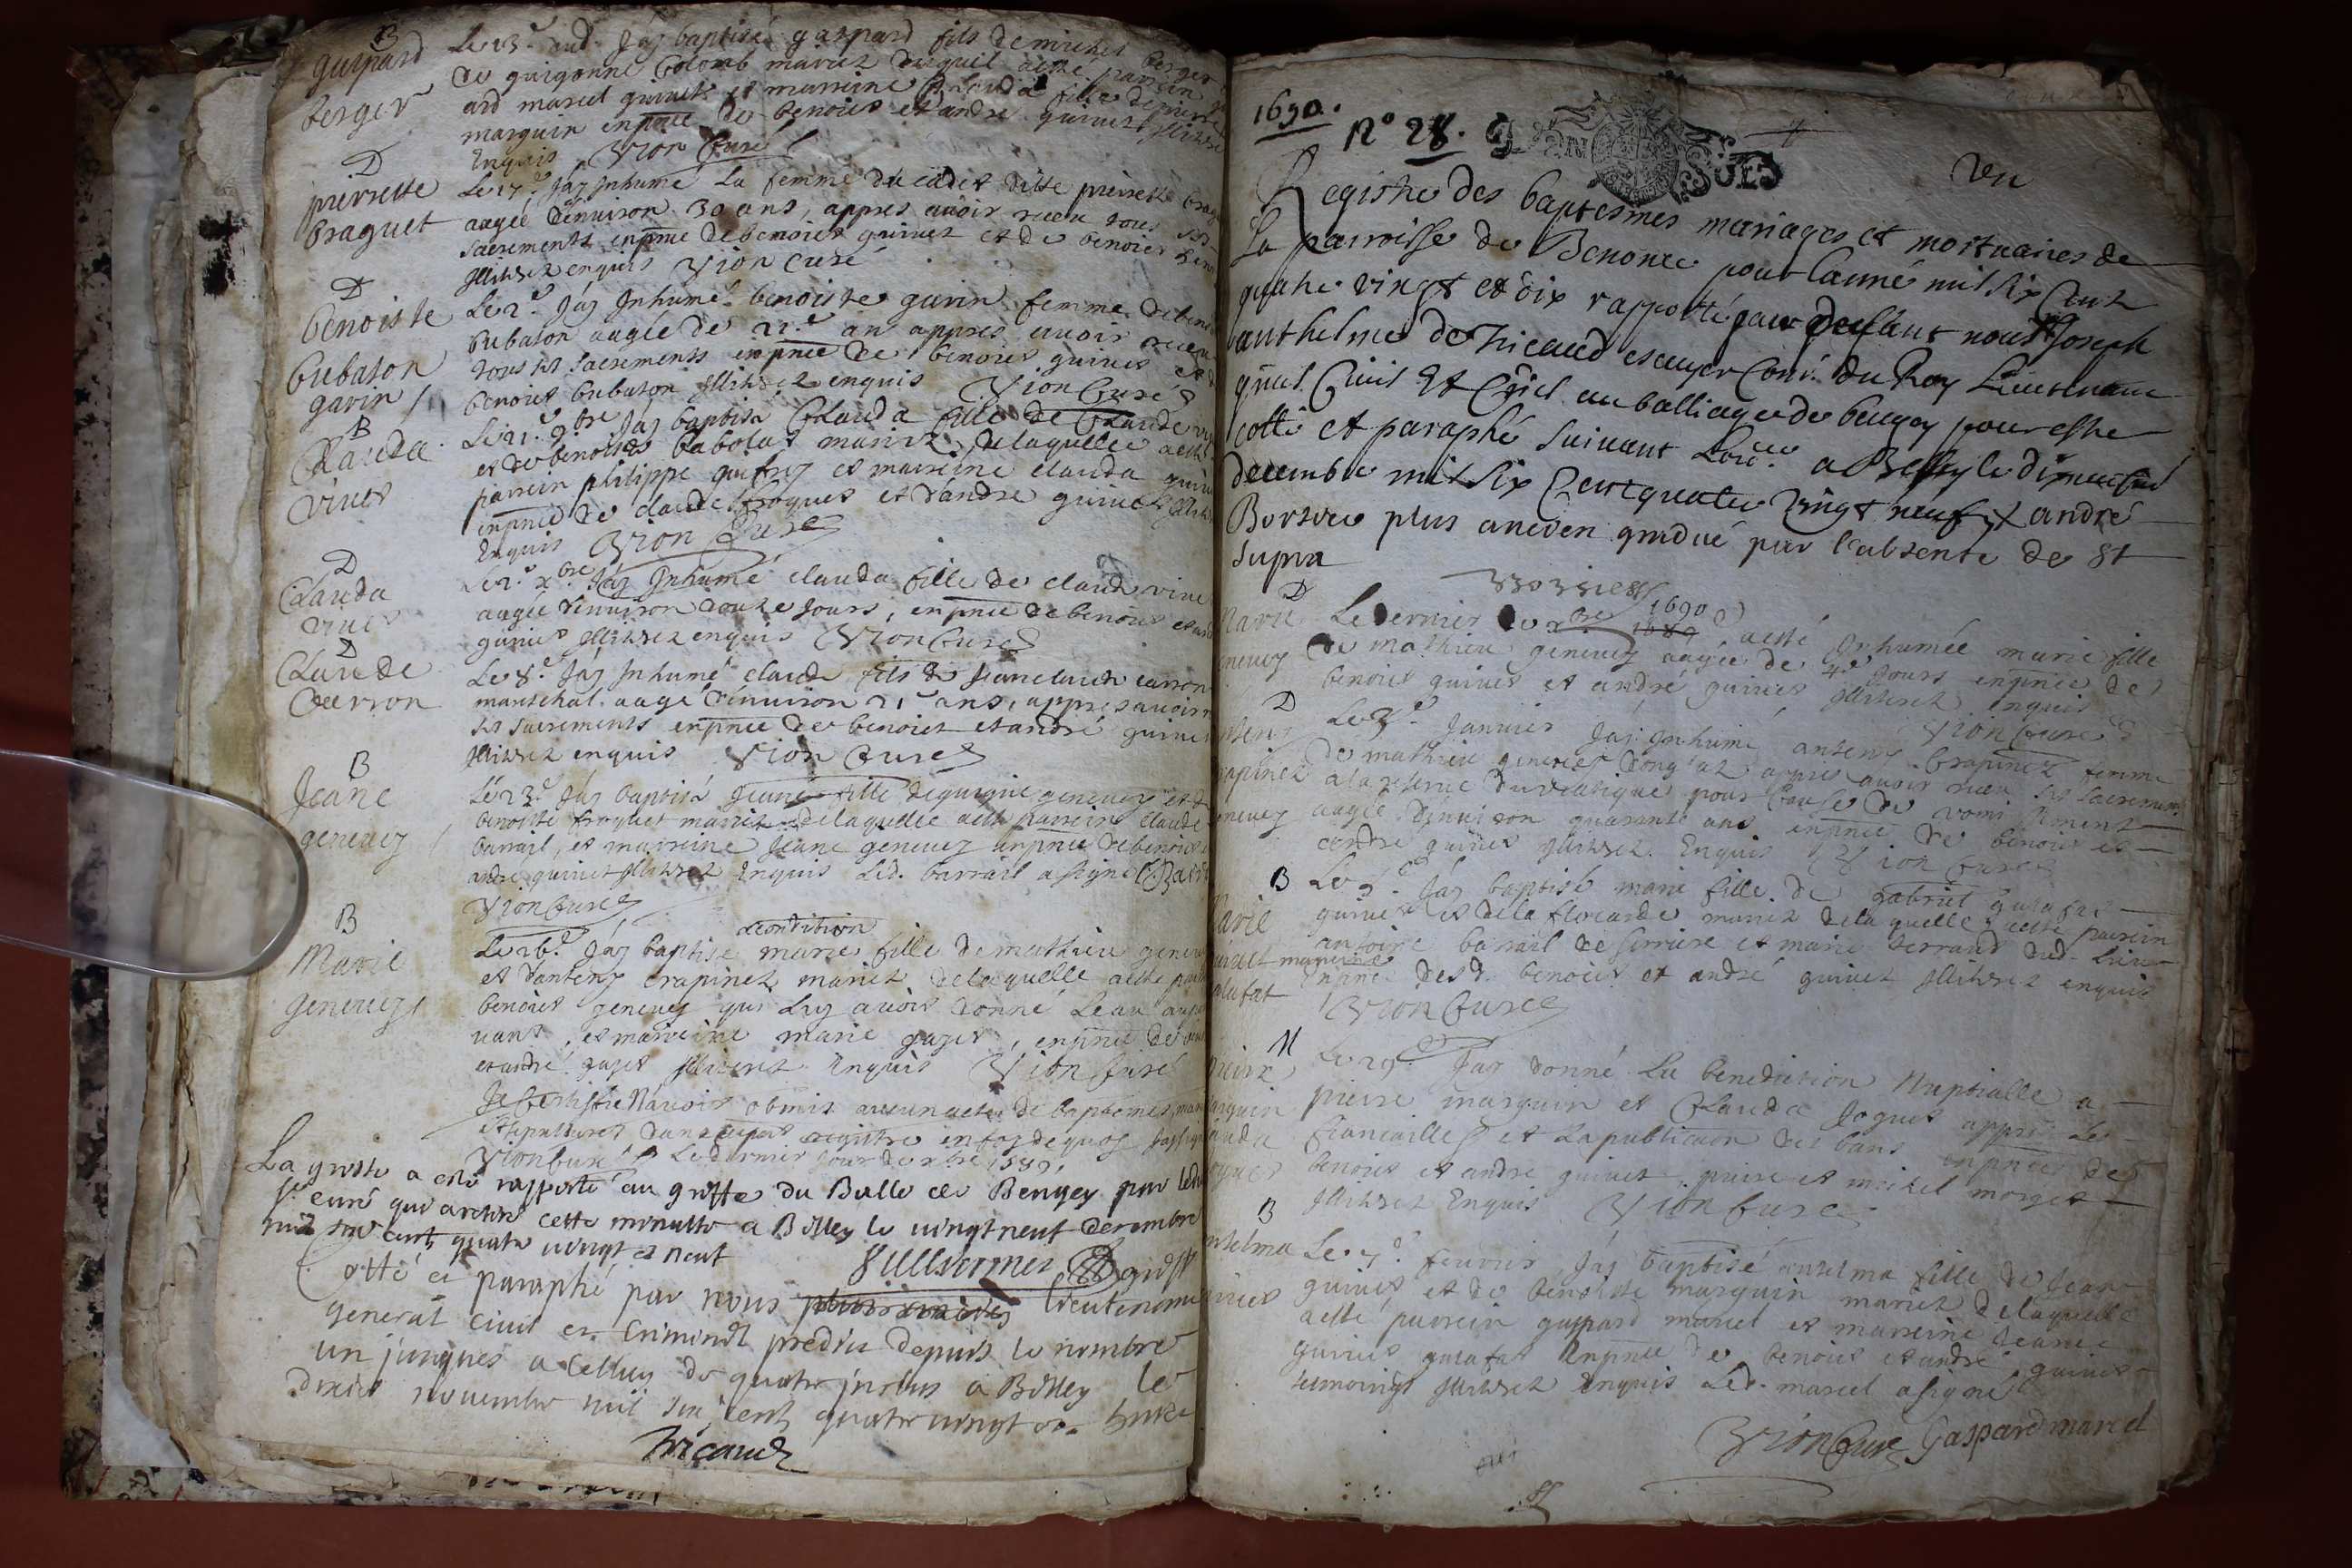 B
gaspard
berger
Le 13.e aud. Jay baptisé gaspard fils de michel berger
de guigonne Colomb mariez duquel a esté parrein
ard marcel guinet et marreine Clauda fille de pierre
marguin en pnce de benoict et andre guinet illitrez
Enquis Vion Curé
D
pierrette
braguet
Le 17.e Jay Inhumé La femme du cadet ditte pierrette brag
aagée d'enuiron 30 ans, appres auoir receu tous ses
sacrements en pnce de benoict guinet et de benoict
illitrez enquis Vion Curé
D
benoiste
bubaton
garin
Le 2.e Jay Inhumé benoiste garin femme de benoi
bubaton aagée de 22.e an appres auoir receu
tous ses sacrements en pnce de benoict guinet et
benoict bubaton illitrez enquis Vion Curé
B
Clauda
vinet
Le 21.e 9bre Jay baptisé Clauda fille de Claude
et de benoiste babolat mariez, de laquelle a esté
parrein philippe et marreine clauda guin
en pnce de claude froquet et d'andre guinet illit
Enquis Vion Curé
D
Clauda
vinet
Le 2.e xbre Jay Inhumé clauda fille de claude vine
aagée d'enuiron douze Jours, en pnce de benoict et and
guinet illitrez enquis Vion Curé
D
Claude
Carron
Le 8.e Jay Inhumé claude fils de Jean claude carron
mareschal aagé d'enuiron 21 ans, appres auoir r
ses sacrements en pnce de benoict et andré guinet
illitrez enquis Vion Curé
B
Jeane
geneuey
Le 23.e Jay baptisé Jeane fille de guigue geneuey et d
benoiste froquet mariez de laquelle a esté parrein claude
barrail, et marreine Jeane geneuey en pnce de benoict
andre guinet illitrez Enquis Led. barrail a signé Barr
Vion Curé
B
Marie
geneuey
a condition
Le 26.e Jay baptisé marie fille de mathieu geneue
et d'anteny crapinet mariez de laquelle a esté par
benoict geneuey qui Luy auoit donné Leau aupa
uant, et marreine marie gaget, en pnce de ben
et andré gaget illitrez Enquis Vion Curé
Je Certiffie N'auoir obmis aucun acte de baptemes, mar
et sepultures dans ce registre en foy de quoy Jay signé
Vion Curé Le dernier Jour de xbre 1689.
La grosse a esté rapporté au greffe du Balle de Beugey par led
sr curé qui a retiré cette minutte a Belley le uingt neuf decembre
mil six cent quatre uingt et neuf
Cotté et paraphé par nous Lieutenant
general ciuil et Criminel predit depuis le nombre
un jusques a Celluy de quatre inclus a Belley le
novembre mil six cent quatre uingt
Tricaud
1690.
N° 28.
Registre des baptesmes mariages et mortuaires de
La parroisse de Benonce pour Lanné mil six Cent
quatre vingt et dix rapporté par deuant nous Joseph
anthelme de Tricaud escuyer Coner. du Roy Lieutenant
gnal Ciuil Et Criel au balliage de beugey pour estre
cotté et paraphé suiuant Lordce a Belley le
decembre mil six Cent quatre vingt neuf andré
Borsieu plus ancien gradué par l'absence de St
supra
D
Marie
geneuey
Le dernier de xbre 1689 1690 a esté Inhumée marie fille
de mathieu geneuey aagée de 4e Jours en pnce de
benoict guinet et andré guinet illiterez enquis
Vion Curé
D
anteny
crapinet
geneuey
Le 3.e Januier Jay Inhumé anteny Crapinet femme
de mathieu geneuey appres auoir receu ses sacrements
a la reserue du viatique pour cause de vomissement
aagée d'enuiron quarante ans en pnce de benoict et
andre guinet illitrez. Enquis Vion Curé
B
Marie
guinet
galafat
Le 5.e Jay baptisé marie fille de gabriel galafat
guinet et de la flocarde mariez de laquelle a esté parrein
antoine barrail de serriere et marreine marie serraud dud. Lieu
En pnce desd. benoict et andré guinet illitrez enquis
Vion Curé
M
pierre
marguin
Clauda
Joguet
Le 29.e Jay donné La benediction Nuptialle a
pierre marguin et Clauda Joguet appres Les
fiancailles et La publication des bans en pnce de
benoict et andre guinet, pierre et michel morget
illitrez Enquis Vion Curé
B
anselma
guinet
Le 7.e feurier Jay baptisé anselma fille de Jean
guinet et de benoiste marguin mariez de laquelle
a esté parrein gaspard marcel et marreine Jeane
guinet galafat En pnce de benoict et andre guinet
tesmoingt illitrez enquis Led. marcel a signé
Vion Curé Gaspard marcel